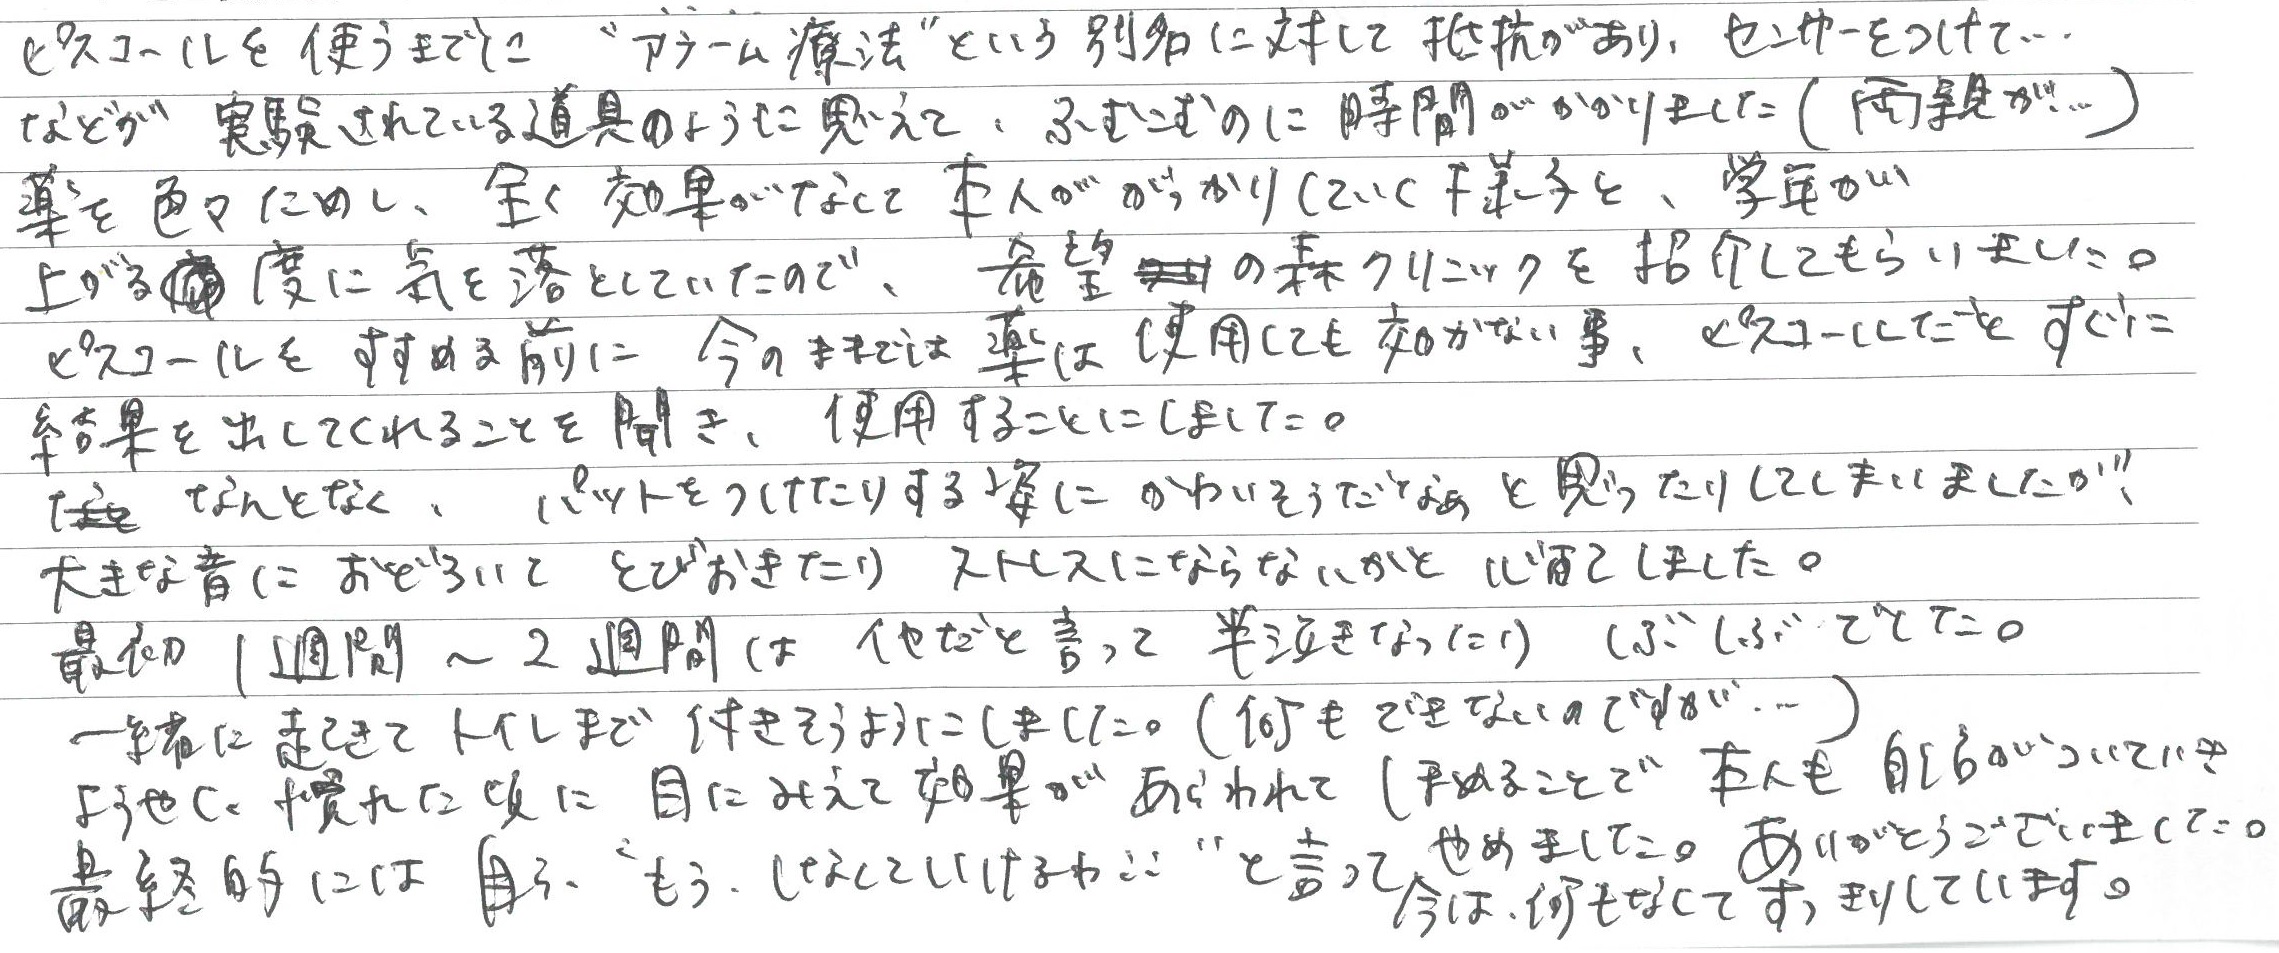 ピスコールを使うまでに “アラーム療法”という別名に対して抵抗があり、センサーをつけて…
などが実験されている道具のように思えて、ふむこむのに時間がかかりました(両親が…)
薬を色々ためし、全く効果がなくて本人ががっかりしていく様子と、学年が
上がる度に気を落としていたので、希望の森クリニックを紹介してもらいました。
ピスコールをすすめる前に 今のままでは薬は使用しても効かない事、ピスコールだとすぐに
結果を出してくれることを聞き、使用することにしました。
なんとなく、パットをつけたりする姿にかわいそうだなぁと思ったりしてしまいましたが、
大きな音におどろいてとびおきたり ストレスにならないかと心配しました。
最初1週間~2週間は だと言って半泣きなったり しぶしぶでした。
一緒に起きてトイレまで付きそうようにしました。(何もできないのですが…)
ようやく、慣れた頃に目にみえて効果があらわれてしまめることで本人も自信がついていき
最終的には自ら、“もう、しなくていけるわ”と言って、やめました。ありがとうございました。
今は、何もなくてすっきりしています。